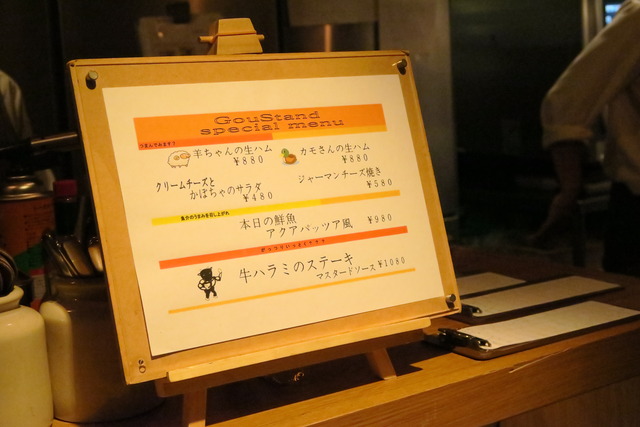 GouStand
special menu
羊ちゃんの生ハム
¥880
カモさんの生ハム
¥880
クリームチーズと
かぼちゃのサラダ
¥480
ジャーマンチーズ焼き
¥580
魚介のうまみを召し上がれ
本日の鮮魚
アクアパッツア風 ¥980
がっつりいっときますか
牛ハラミのステーキ
マスタードソース ¥1080